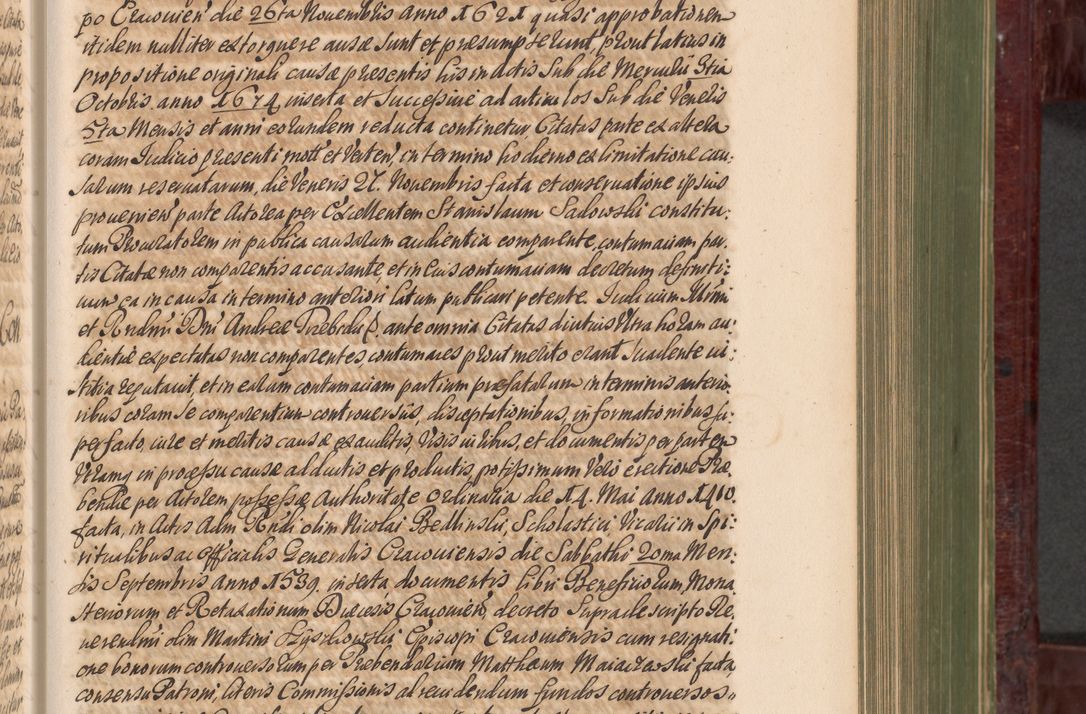 po Cracovien die 26ta Novembris anno 1621 quasi approbationem
itidem nulliter extorquere ausæ sunt et præsumpserunt, prout latius in
propositione originali causæ præsentis his in actis sub die Mercurii 3tia
Octobris anno 1674 inserta et successive ad articulos sub die Veneris
5ta Mensis et anni eorundem reducta continetur Citatas parte ex altera
coram Iudicio præsenti mott et verten in termino hodierno ex limitatione cau:
sarum reservatarum, die Veneris 27. Novembris facta et conservatione ipsius
provenien parte Actorea per Excellentem Stanislaum Sadowski constitu:
tum Procuratorem in publica causarum audientia comparente, contumaciam par:
tis Citatæ non comparentis accusante, et in eius contumaciam decretum definiti:
vum ea in causa in termino anteriori latum publicari petente. Iudicium Illmi
et Rndmi Dni Andreæ Trzebicki ante omnia Citatas diutius Ultra horam au:
dientiæ expectatas non comparentes, contumaces prout merito erant suadente iu:
stitia reputavit, et in earum contumaciam partium præfatarum in terminis anterio
ribus coram se comparentium controversiis, disceptationibus, informationibus su:
per facto, iure et meritis causæ exauditis, Visis iuribus, et documentis per partem
Utramq in processu causæ adductis et productis, potissimum Vero erectione Præ:
bendæ per Actorem possessæ Authoritate Ordinaria die 14. Mai anno 1410.
facta, in Actis Adm Rndi olim Nicolai Bedlinski, Scholastici Vicarii in Spi:
ritualibus ac Officialis Generalis Cracoviensis die Sabbathi 20ma Men:
sis Septembris anno 1539. inserta documentis libri Beneficiorum, Mona
steriorum et Retaxationum Diæcesis Cracovien, decreto suprascripto Re:
verendmi olim Martini Szyszkowski Episcopi Cracoviensis cum resignati
one bonorum controversorum per Præbendarium Matthæum facta,
consensu Patroni, literis Commissionis ad revidendum fundos controversos